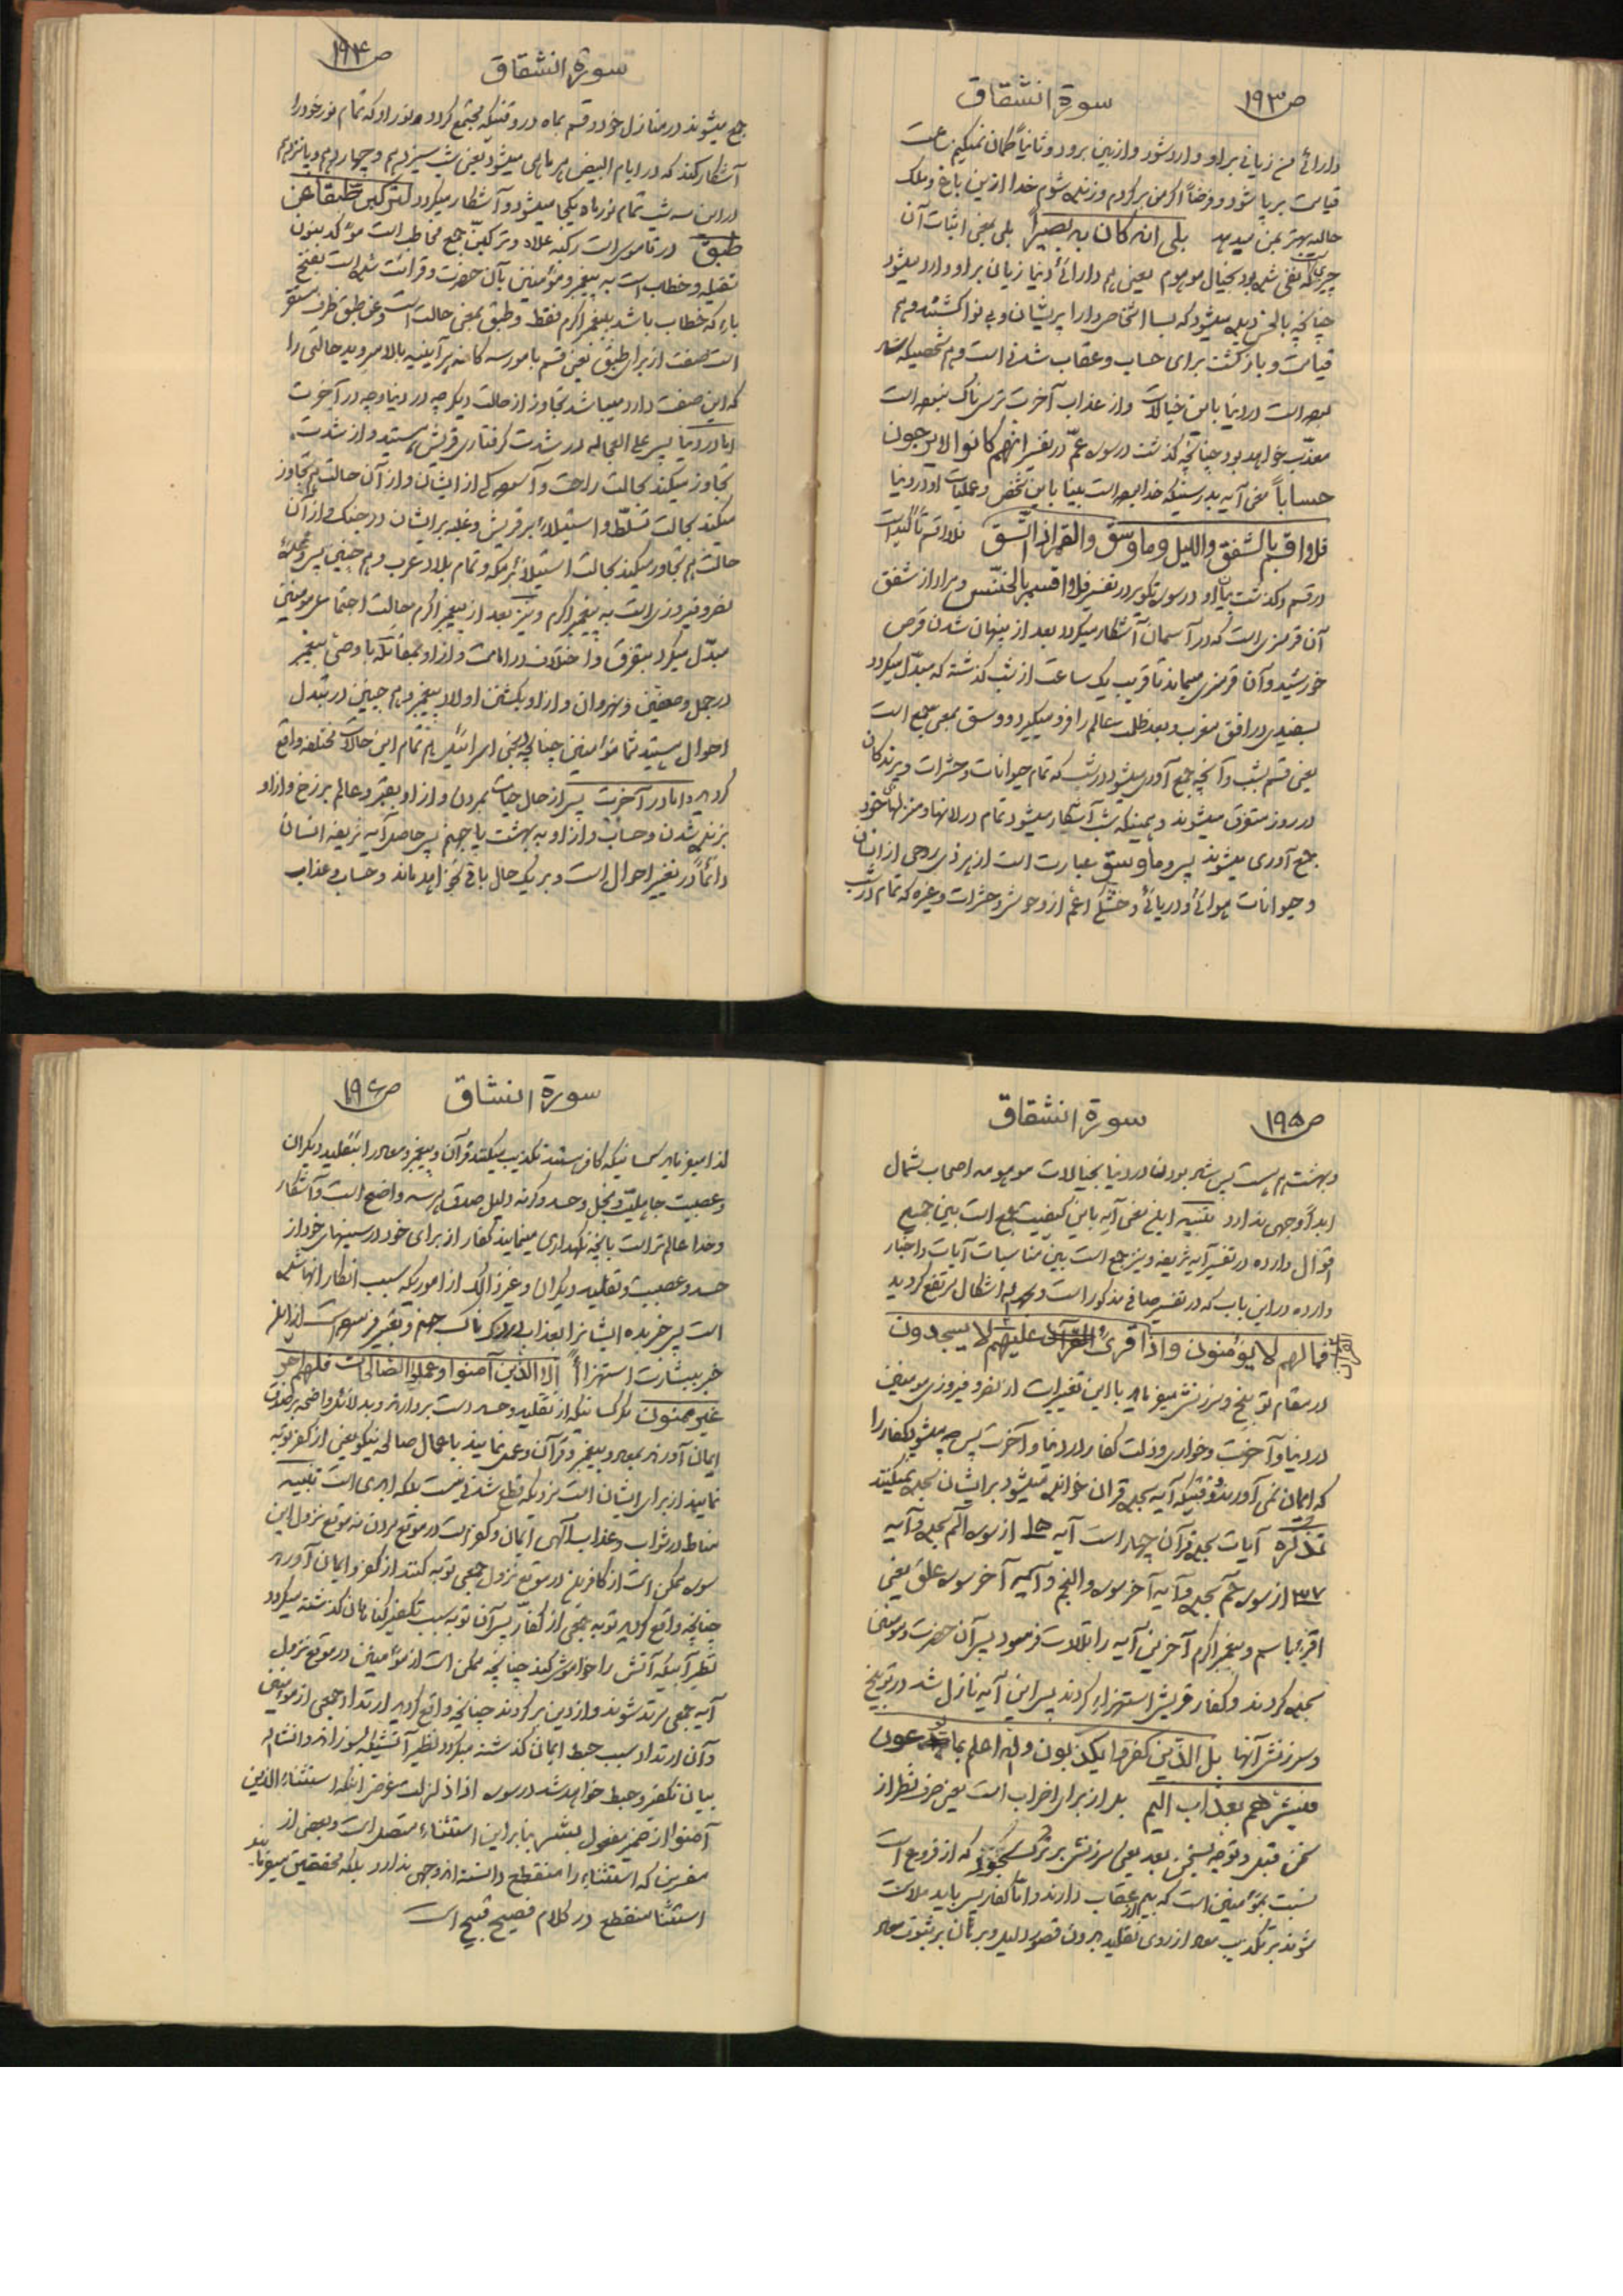 ص۱۹۳ سورة انشقاق
دارائی من زیانی براو وارد شود و از بین برود و ثانیاً گمان نمیکنم ساعت
قیامت برپا شود و فرضاً اگر من برگردم و زنده شوم خدا ازین باغ و ملک
حالیه بهتر بمن میدهد بلی انه کان به بصیراً بلی بمعنی اثبات آن
چیزیست که نفی شده بود بخیال موهوم یعنی هم دارائی دنیا زیان براو وارد میشود
چنانچه بالحس دیده میشود که بسا اشخاص دارا پریشان و بی نوا گشتند و هم
قیامت و بازگشت برای حساب و عقاب شدنی است و هم شخصیکه
بوده است در دنیا باین خیالات و از عذاب آخرت ترس ناک نبوده است
معذّب خواهد بود چنانچه گذشت در سوره عمّ در تفسیر انهم کانوا لا یرجون
حساباً معنی آیه بدرستیکه خدا بوده است بینا باین شخص و عملیات او در دنیا
فلا اقسم بالشفق واللیل وما وسق والقمر اذا اتّسق فلا اقسم تأکید است
در قسم و گذشت بیان او در سوره تکویر در تفسیر فلا اقسم بالخنّس و مراد از شفق
آن قرمزی است که در آسمان آشکار میگردد بعد از پنهان شدن قرص
خورشید و آن قرمزی میماند تا قریب یک ساعت از شب گذشته که مبدّل میگردد
بسفیدی در افق مغرب و بعد ظلمت عالم را فرو میگیرد و وسق بمعنی جمع است
یعنی قسم بشب و آنچه جمع آوری میشود در شب که تمام حیوانات و حشرات و پرندگان
در روز متفرق میشوند و همینکه شب آشکار میشود تمام در لانها و منزلهای خود
جمع آوری میشوند پس و ما وسق عبارت است از هر ذی روحی از انسان
و حیوانات هوائی و دریائی و خشکی اعم از وحوش و حشرات و غیره که تمام در شب
سورة انشقاق ص۱۹۴
جمع میشوند در منازل خود و قسم بماه در وقتیکه مجتمع گردد نور او که تمام نور خود را
آشکار کند که در ایام البیض هر ماهی میشود یعنی شب سیزدهم و چهاردهم و پانزدهم
در این سه شب تمام نور ماه یکجا میشود و آشکار میگردد لترکبن طبقا عن
طبق در قاموس است رکبه علاه و ترکبنّ جمع مخاطب است مؤکد بنون
ثقیله و خطاب است به پیغمبر و مؤمنین بآن حضرت و قرائت شده است بفتح
باء که خطاب باشد به پیغمبر اکرم فقط و طبق بمعنی حالت است و عن طبق ظرف مستقر
است صفت از برای طبق یعنی قسم بامور سه گانه هر آینه بالا میروید حالتی را
که این صفت دارد میباشد تجاوز از حالت دیگر چه در دنیا و چه در آخرت
اما در دنیا پس علی العجاله در شدت گرفتاری قریش هستید و از شدت
تجاوز میکنید بحالت راحت و آسودگی از ایشان و از آن حالت هم تجاوز
میکنید بحالت تسلّط و استیلاء بر قریش و غلبه بر ایشان در جنگ و از آن
حالت هم تجاوز میکنید بحالت استیلاء بر مکه و تمام بلاد عرب و هم چنین پس
نصر و فیروزی است به پیغمبر اکرم و نیز بعد از پیغمبر اکرم حالت اجتماعی مومنین
مبدّل میگردد بتفرق و اختلاف در امامت و از او بمقاتله با وصی پیغمبر
در جمل و صفین و نهروان و از او بکشتن اولاد پیغمبر و هم چنین در تبدل
احوال هستید شما مؤمنین چنانچه در بنی اسرائیل هم تمام این حالات مختلفه واقع
گردید و اما در آخرت پس از حال حیات بمردن و از او بقبر و عالم برزخ و از او
بزنده شدن و حساب و از او به بهشت یا جهنم پس حاصل آیه شریفه انسان
دائماً در تغییر احوال است و بر یک حال باقی نخواهد ماند و حساب و عذاب
ص۱۹۵ سورة انشقاق
و بهشت هم هست پس شاد بودن در دنیا بخیالات موهومه اصحاب شمال
ابداً وجهی ندارد تنبیه ابلغ معنی آیه باین کیفیت جمع است بین جمیع
اقوال وارده در تفسیر آیه شریفه و نیز جمع است بین مناسبات آیات و اخبار
وارده در این باب که در تفسیر صافی مذکور است و بحمد الله اشکال مرتفع گردید
فما لهم لا یؤمنون واذا قرئ علیهم القرآن لا یسجدون
در مقام توبیخ و سرزنش میفرماید با این تغییرات از نصر و فیروزی مومنین
در دنیا و آخرت و خواری و ذلت کفار در دنیا و آخرت پس چه میشود کفار را
که ایمان نمی آورند و وقتیکه آیه سجده قرآن خوانده میشود بر ایشان سجده نمیکنند
تذکره آیات سجده قرآن چهار است آیه ۱۵ از سوره الم سجده و آیه
۳۷ از سوره حم سجده و آیه آخر سوره والنجم و آیه آخر سوره علق یعنی
اقرء باسم و پیغمبر اکرم آخرین آیه را تلاوت فرمود پس آن حضرت و مومنین
سجده کردند و کفار قریش استهزاء کردند پس این آیه نازل شد در توبیخ
و سرزنش آنها بل الّذین کفروا یکذبون والله اعلم بما یوعون
فبشرهم بعذاب الیم بل از برای اضراب است یعنی صرف نظر از
سخن قبل و توجه بسخن بعد یعنی سرزنش بر ترک سجود که از فروع است
نسبت بمؤمنین است که بیم از عقاب دارند و اما کفار پس باید ملامت
شوند بر تکذیب معاد از روی تقلید بدون قصور دلیل و برهان بر ثبوت معاد
سورة انشاق ص۱۹۶
لذا میفرماید کسانیکه کافر هستند تکذیب میکنند قرآن و پیغمبر و معاد را بتقلید دیگران
و عصبیت جاهلیت و بخل و حسد و گرنه دلیل صدق هر سه واضح است و آشکار
و خدا عالم تر است بآنچه نگهداری مینمایند کفار از برای خود در سینهای خود از
حسد و عصبیت و تقلید دیگران و غیر ذالک از اموریکه سبب انکار آنها شده
است پس خبر بده ایشانرا بعذاب دردناک جهنم و تعبیر فرموده است از
خبر ببشارت استهزاءً الا الّذین آمنوا وعملوا الصالحات فلهم اجر
غیر ممنون مگر کسانیکه از تقلید و حسد دست بردارند و بدلائل واضحه
ایمان آورند بمعاد و پیغمبر و قرآن و عمل نمایند باعمال صالحه نیکو یعنی از کفر توبه
نمایند از برای ایشان است مزدیکه قطع شدنی نیست بلکه ابدی است تنبیه
مناط در ثواب و عذاب الهی ایمان و کفر است در موقع مردن نه موقع نزول این
سوره ممکن است از کافرین در موقع نزول جمعی توبه کنند از کفر و ایمان آورند
چنانچه واقع گردید توبه جمعی از کفار پس آن توبه سبب تکفیر گناهان گذشته میگردد
نظیر آبیکه آتش را خاموش کند چنانچه ممکن است از مؤمنین در موقع نزول
آیه جمعی مرتد شوند و از دین برگردند چنانچه واقع گردید ارتداد جمعی از مومنین
و آن ارتداد سبب حبط ایمان گذشته میگردد نظیر آتشیکه بسوزاند و انشاء الله
بیان تکفیر و حبط خواهد شد در سوره اذا زلزلت غرض آنکه استثناء الّذین
آمنوا از ضمیر مفعول بشّر بنابراین استثناء متصل است و بعضی از
مفسرین که استثناء را منقطع دانسته اند وجهی ندارد بلکه محققین میفرمایند
استثنا منقطع در کلام فصیح قبیح است